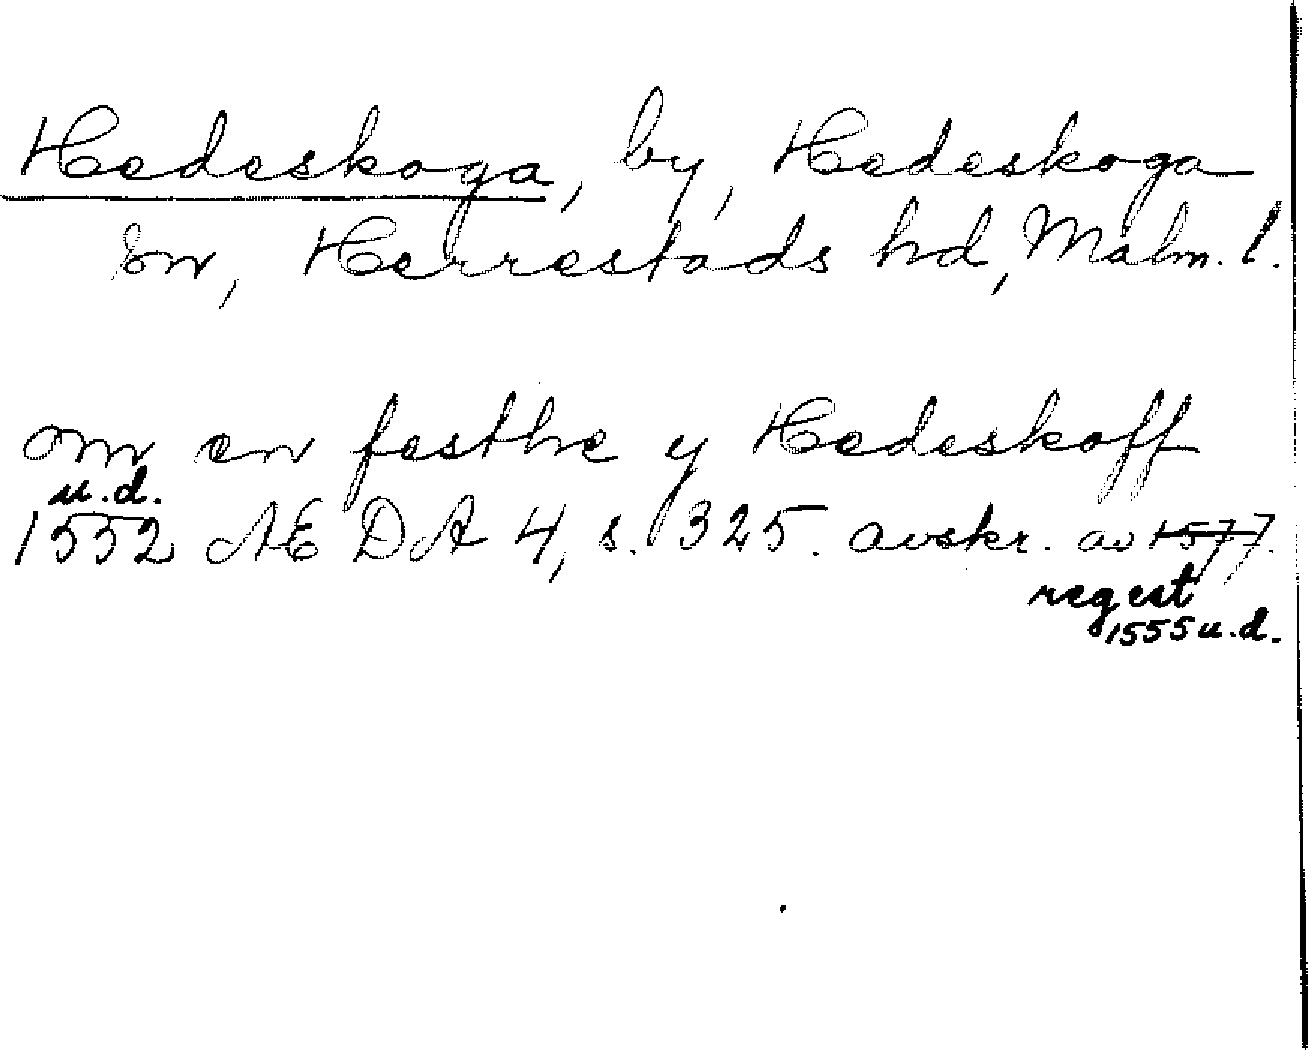 Hedeskoga, by, Hedeskoga
sn, Herrestads hd, Malm. l.
om en festhe y Hedeskoff
u.d.
1552 AE DA 4, s. 325. avskr. av 1577.
regest
1555 u.d.